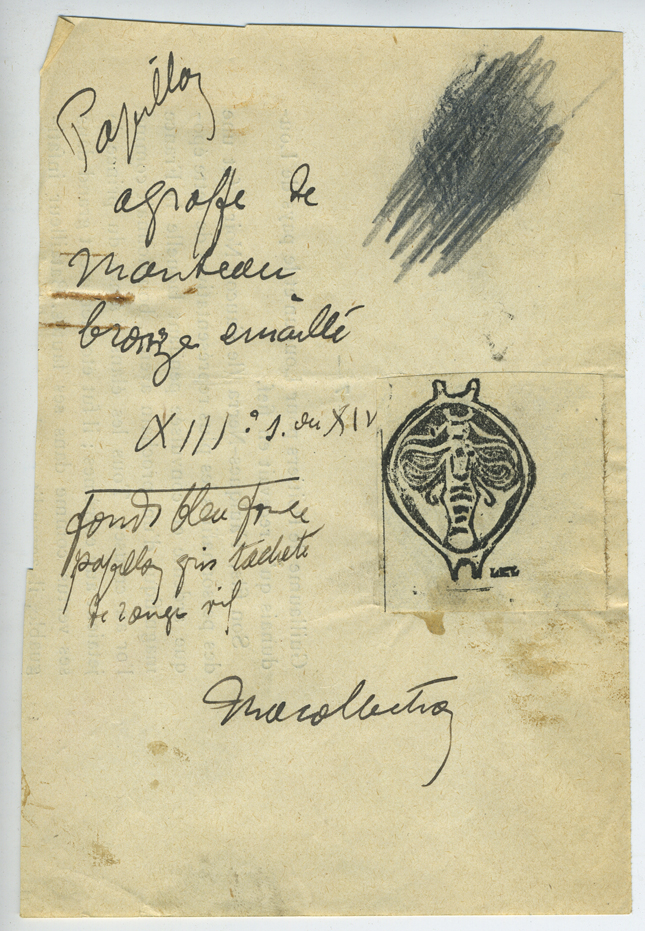 Papillon
agraffe de
Manteau
bronze émaillé
XIIIe s. ou XIV
fonds bleu foncé
papillon gris tacheté
de rouge vif
Ma collection
LEL